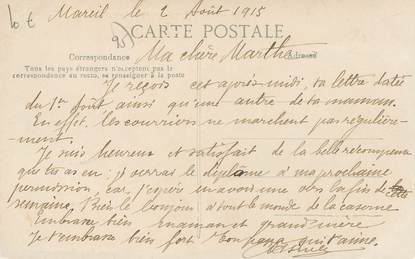 10 €
95)
Mareil le 2 Août 1915
CARTE POSTALE
Correspondance
Ma chère Marthe
Adresse
Tous les pays étrangers n'acceptent pas la
correspondance au recto, se renseigner à la poste
Je reçois cet après-midi, ta lettre datée
du 1er Août, ainsi qu'une autre de ta maman.
En effet, les courriers ne marchent pas régulière-
ment.
Je suis heureux et satisfait de la belle récompense
que tu as eu : je verrai le diplôme à ma prochaine
permission, car j'espère en avoir une vers la fin de
semaine. Bien le bonjour à tout le monde de la caserne
Embrasse bien maman et grand'mère
Je t'embrasse bien fort. Ton papa qui t'aime.